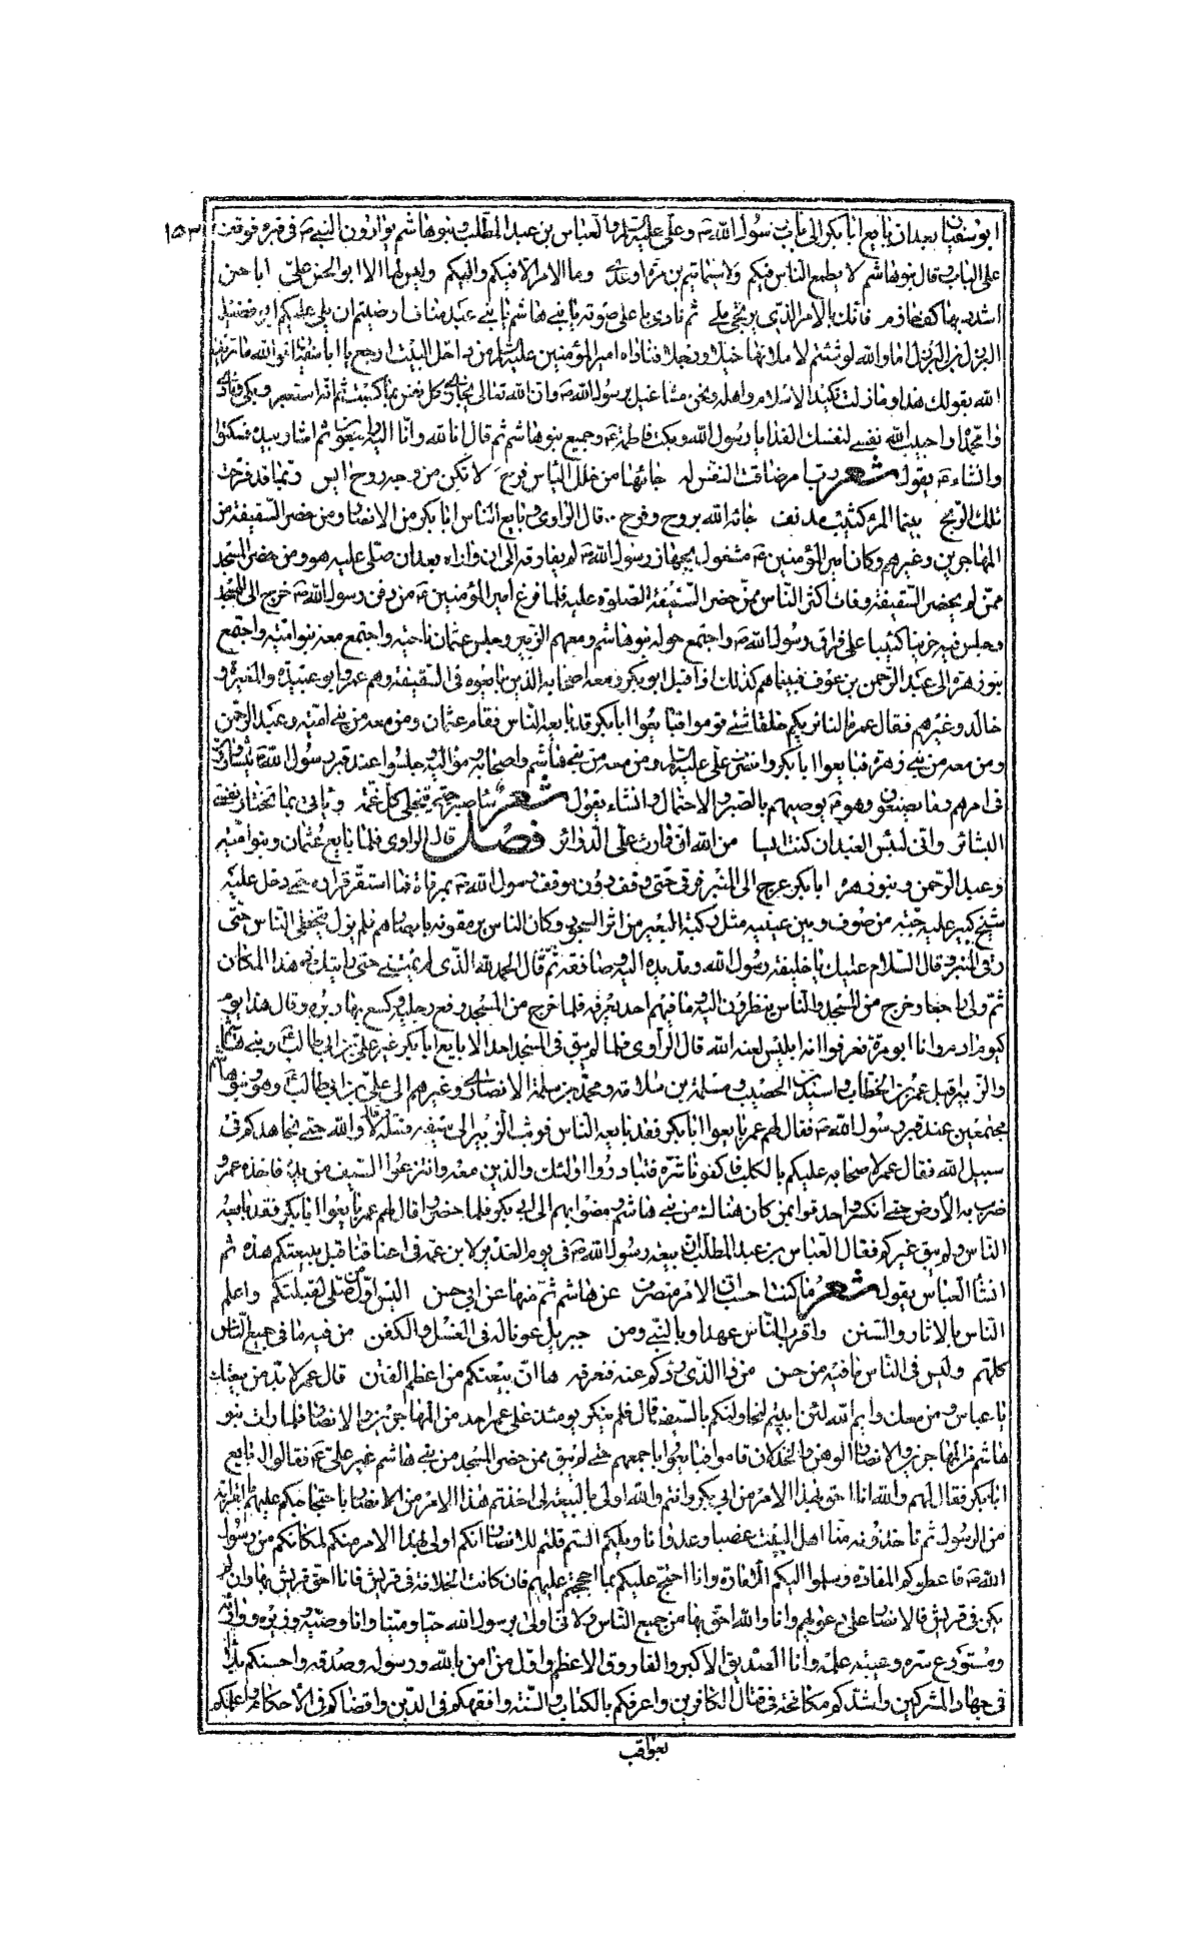 ابو سفيان بعد ان بايع ابا بكر الى باب رسول الله ص وعلى عليه السلام والعباس بن عبد المطلب وبنو هاشم يوارون النبى ص فى قبره فوقف ١٥٣
على الباب وقال بنو هاشم لا يطمع الناس فيكم ولا سيما تيم بن مرة او عدى وما الامر الا فيكم واليكم وليس لها الا ابو الحسن على ابا حسن
اشدد بها كف حازم فانك بالامر الذى يرتجى ملى ثم نادى باعلى صوته يا بنى هاشم يا بنى عبد مناف ارضيتم ان يلى عليكم ابو فضيل
الرذل بن الرذل اما والله لو شئتم لاملانها خيلا ورجلا فناداه امير المؤمنين عليه السلام من داخل البيت ارجع يا ابا سفيان فو الله ما تريد
الله بقولك هذا وما زلت تكيد الاسلام واهله ونحن مشاغيل برسول الله ص وان الله تعالى يجازى كل نفس بما كسبت ثم انه استعبر وبكى ونادى
وا محمداه وا حبيب الله نفسى لنفسك الفدا يا رسول الله وبكت فاطمة ع وجميع بنو هاشم ثم قال انا لله وانا اليه راجعون ثم اشار بيده فسكتوا
وانشاء ع يقول شعر ربما مر ضاقت النفس له جائها من خلل الياس فرج لا تكن من وجه روح ايس ربما قد فرجت
تلك الرتج بينما المرء كئيب مدنف جائه الله بروح وفرج .. قال الراوى وبايع الناس ابا بكر من الانصار ومن حضر السقيفة من
المهاجرين وغيرهم وكان امير المؤمنين ع مشغول بجهاز رسول الله ص لم يفارقه الى ان واراه بعد ان صلى عليه هو ومن حضر المسجد
ممن لم يحضر السقيفة وفات اكثر الناس ممن حضر السقيفة الصلوة عليه فلما فرغ امير المؤمنين ع من دفن رسول الله ص خرج الى المسجد
وجلس فيه حزينا كئيبا على فراق رسول الله ص واجتمع حوله بنو هاشم ومعهم الزبير وجلس عثمان ناحية واجتمع معه بنو امية واجتمع
بنو زهرة الى عبد الرحمن بن عوف فبينما هم كذلك اذ اقبل ابو بكر ومعه اصحابه الذين بايعوه فى السقيفة وهم عمر وابو عبيدة والمغيرة و
خالد وغيرهم فقال عمر ما لنا نريكم حلقا شتى قوموا فبايعوا ابا بكر قد بايعه الناس فقام عثمان ومن معه من بنى امية وعبد الرحمن
ومن معه من بنى زهرة فبايعوا ابا بكر وانتضى على عليه السلام ومن معه من بنى هاشم واصحابه ومواليه وجلسوا عند قبر رسول الله ص يتشاورون
فى امرهم وما يصنعون وهو ع يوصيهم بالصبر والاحتمال وانشاء يقول شعر ساصبر حتى تنجلى كل غمة وياتى بما تختار نفسى
البشائر وانى لبئس العبد ان كنت ايسا من الله ان دارت على الدوائر فصل قال الراوى فلما بايع عثمان وبنو امية
وعبد الرحمن وبنو زهرة ابا بكر عرج الى المنبر فرقى حتى وقف دون موقف رسول الله ص بمرقاة فما استقر قراره حتى دخل عليه
شيخ كبير عليه جبة من صوف وبين عينيه مثل ركبة البعير من اثر السجود وكان الناس يرمقونه بابصارهم فلم يزل يتخطى الناس حتى
رقى المنبر وقال السلام عليك يا خليفة رسول الله ومد يده اليه وصافقه ثم قال الحمد لله الذى لم يمتنى حتى رايتك فى هذا المكان
ثم ولى راجعا وخرج من المسجد والناس ينظرون اليه ما فيهم احد يعرفه فلما خرج من المسجد رفع رجليه وكسع بها دبره وقال هذا يوم
كيوم ادم وانا ابو مرة فعرفوا انه ابليس لعنه الله قال الراوى فلما لم يبق فى المسجد احد الا بايع ابا بكر غير على بن ابى طالب ع وبنى هاشم
والزبير اقبل عمر بن الخطاب واسيد بن الحصيب ومسلمة بن سلامة ومحمد بن سلمة الانصارى وغيرهم الى على بن ابى طالب ع وهو وبنو هاشم
مجتمعين عند قبر رسول الله ص فقال لهم عمر بايعوا ابا بكر فقد بايعه الناس فوثب الزبير الى سيفه فسله وقال لا والله حتى نجاهدكم فى
سبيل الله فقال عمر لاصحابه عليكم بالكلب فاكفونا شره فتبادروا اولئك والذين معه وانتزعوا السيف من يده فاخذه عمر و
ضرب به الارض حتى انكسر واحدقوا بمن كان هنالك من بنى هاشم ومضوا بهم الى ابى بكر فلما حضروا قال لهم عمر بايعوا ابا بكر فقد بايعه
الناس ولم يبق غيركم فقال العباس بن عبد المطلب ان بيعة رسول الله ص فى يوم الغدير لابن عمه فى اعناقنا قبل بيعتكم هذه ثم
انشأ العباس يقول شعر ما كنت احسب ان الامر منصرف عن هاشم ثم منها عن ابى حسن اليس اول من صلى لقبلتكم واعلم
الناس بالاثار والسنن واقرب الناس عهدا بالنبى ومن جبريل عون له فى الغسل والكفن من فيه ما فى جميع الناس
كلهم وليس فى الناس ما فيه من حسن من ذا الذى ردكم عنه فنعرفه ها ان بيعتكم من اعظم الفتن قال عمر لا بد من بيعتك
يا عباس ومن معك وايم الله لئن ابيتم لنحاولنكم بالسيف قال فلم ينكر يومئذ على عمر احد من المهاجرين والانصار فلما رات بنو
هاشم من المهاجرين والانصار الوهن والخذلان قاموا فبايعوا باجمعهم حتى لم يبق ممن حضر المسجد من بنى هاشم غير على ع فقالوا له بايع
ابا بكر فقال لهم والله انا احق بهذا الامر من ابى بكر وانتم والله اولى بالبيعة لى اخذتم هذا الامر من الانصار باحتجاجكم عليهم بالقرابة
من الرسول ثم تاخذونه منا اهل البيت غصبا وعدوانا ويلكم الستم قلتم للانصار انكم اولى بهذا الامر منكم لمكانكم من رسول
الله ص فاعطوكم المقادة وسلموا اليكم الامارة وانا احتج عليكم بما احججتم عليهم فان كانت الخلافة فى قريش فانا احق قريش بها وان لم
يكن فى قريش فالانصار على دعويهم وانا والله احق بها من جميع الناس لانى اولى برسول الله حيا وميتا وانا وصيه ووزيره ووارثه
ومستودع سره وعيبة علمه وانا الصديق الاكبر والفاروق الاعظم واول من امن بالله ورسوله وصدقه واحسنكم بلاء
فى جهاد المشركين واشدكم مكانحة فى قتال الكافرين واعرفكم بالكتاب والسنة وافقهكم فى الدين واقضاكم فى الاحكام واعلمكم
بعواقب